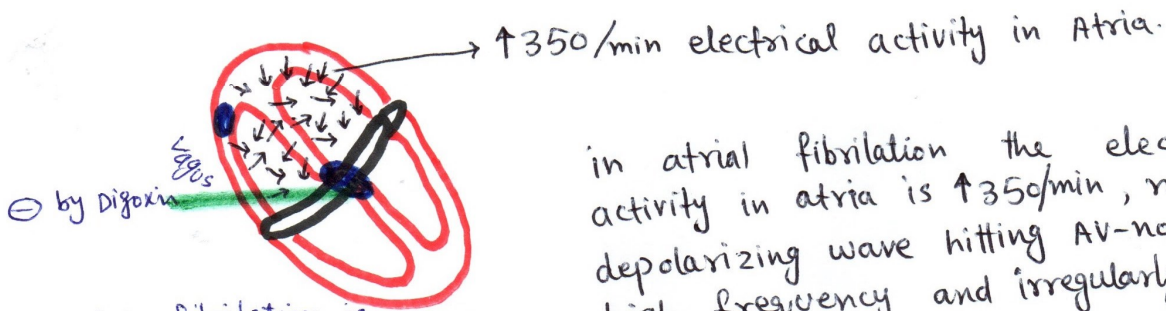 ↑350/min electrical activity in Atria.
Vagus
⊖ by Digoxin
in atrial fibrilation the elec
activity in atria is ↑350/min, 
depolarizing wave hitting AV-no
frequency and irregularl